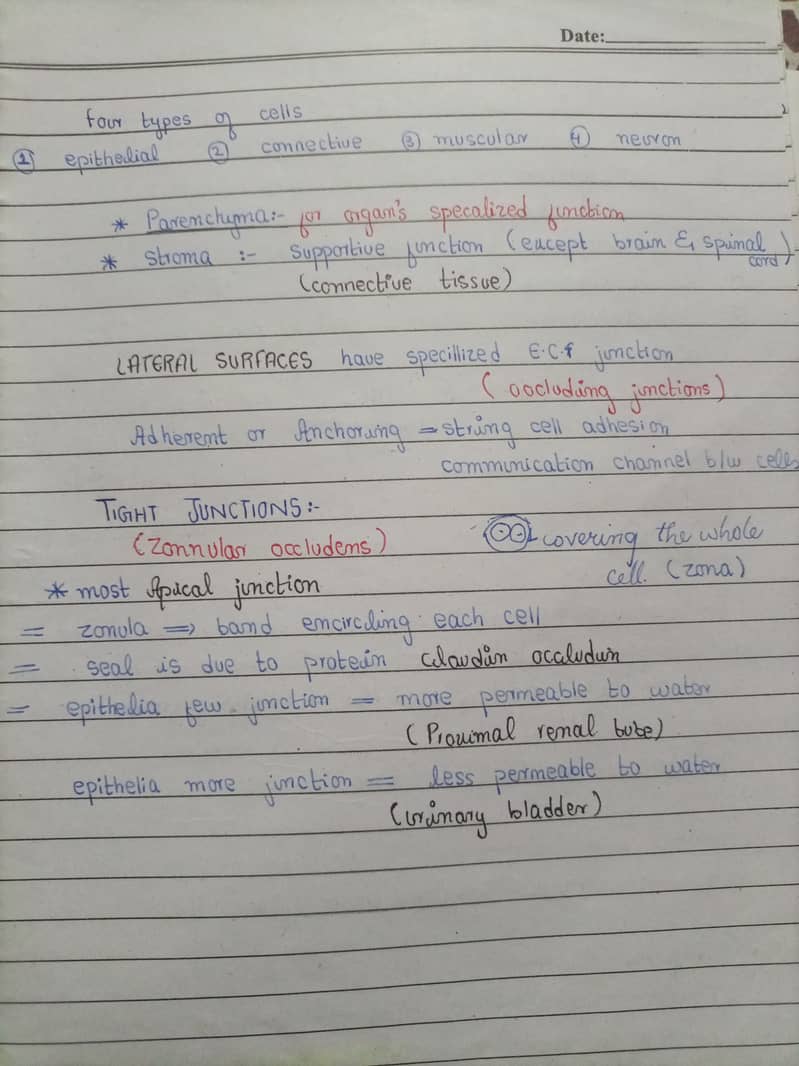 Date:
four types of cells
① epithelial ② connective ③ muscular ④ neuron
* Parenchyma:- for organ's specalized function
* Stroma :- supportive function (except brain & spinal cord)
(connective tissue)
LATERAL SURFACES have specillized E.C.f junction
(occluding junctions)
Adherent or Anchoring = string cell adhesion
communication channel b/w cells
TIGHT JUNCTIONS:-
(Zonnular occludems)
covering the whole
cell. (zona)
* most Apical junction
= zonula => band encircling each cell
= seal is due to protein claudin occludin
= epithelia few junction = more permeable to water
(Proximal renal tube)
epithelia more junction = less permeable to water
(urinary bladder)